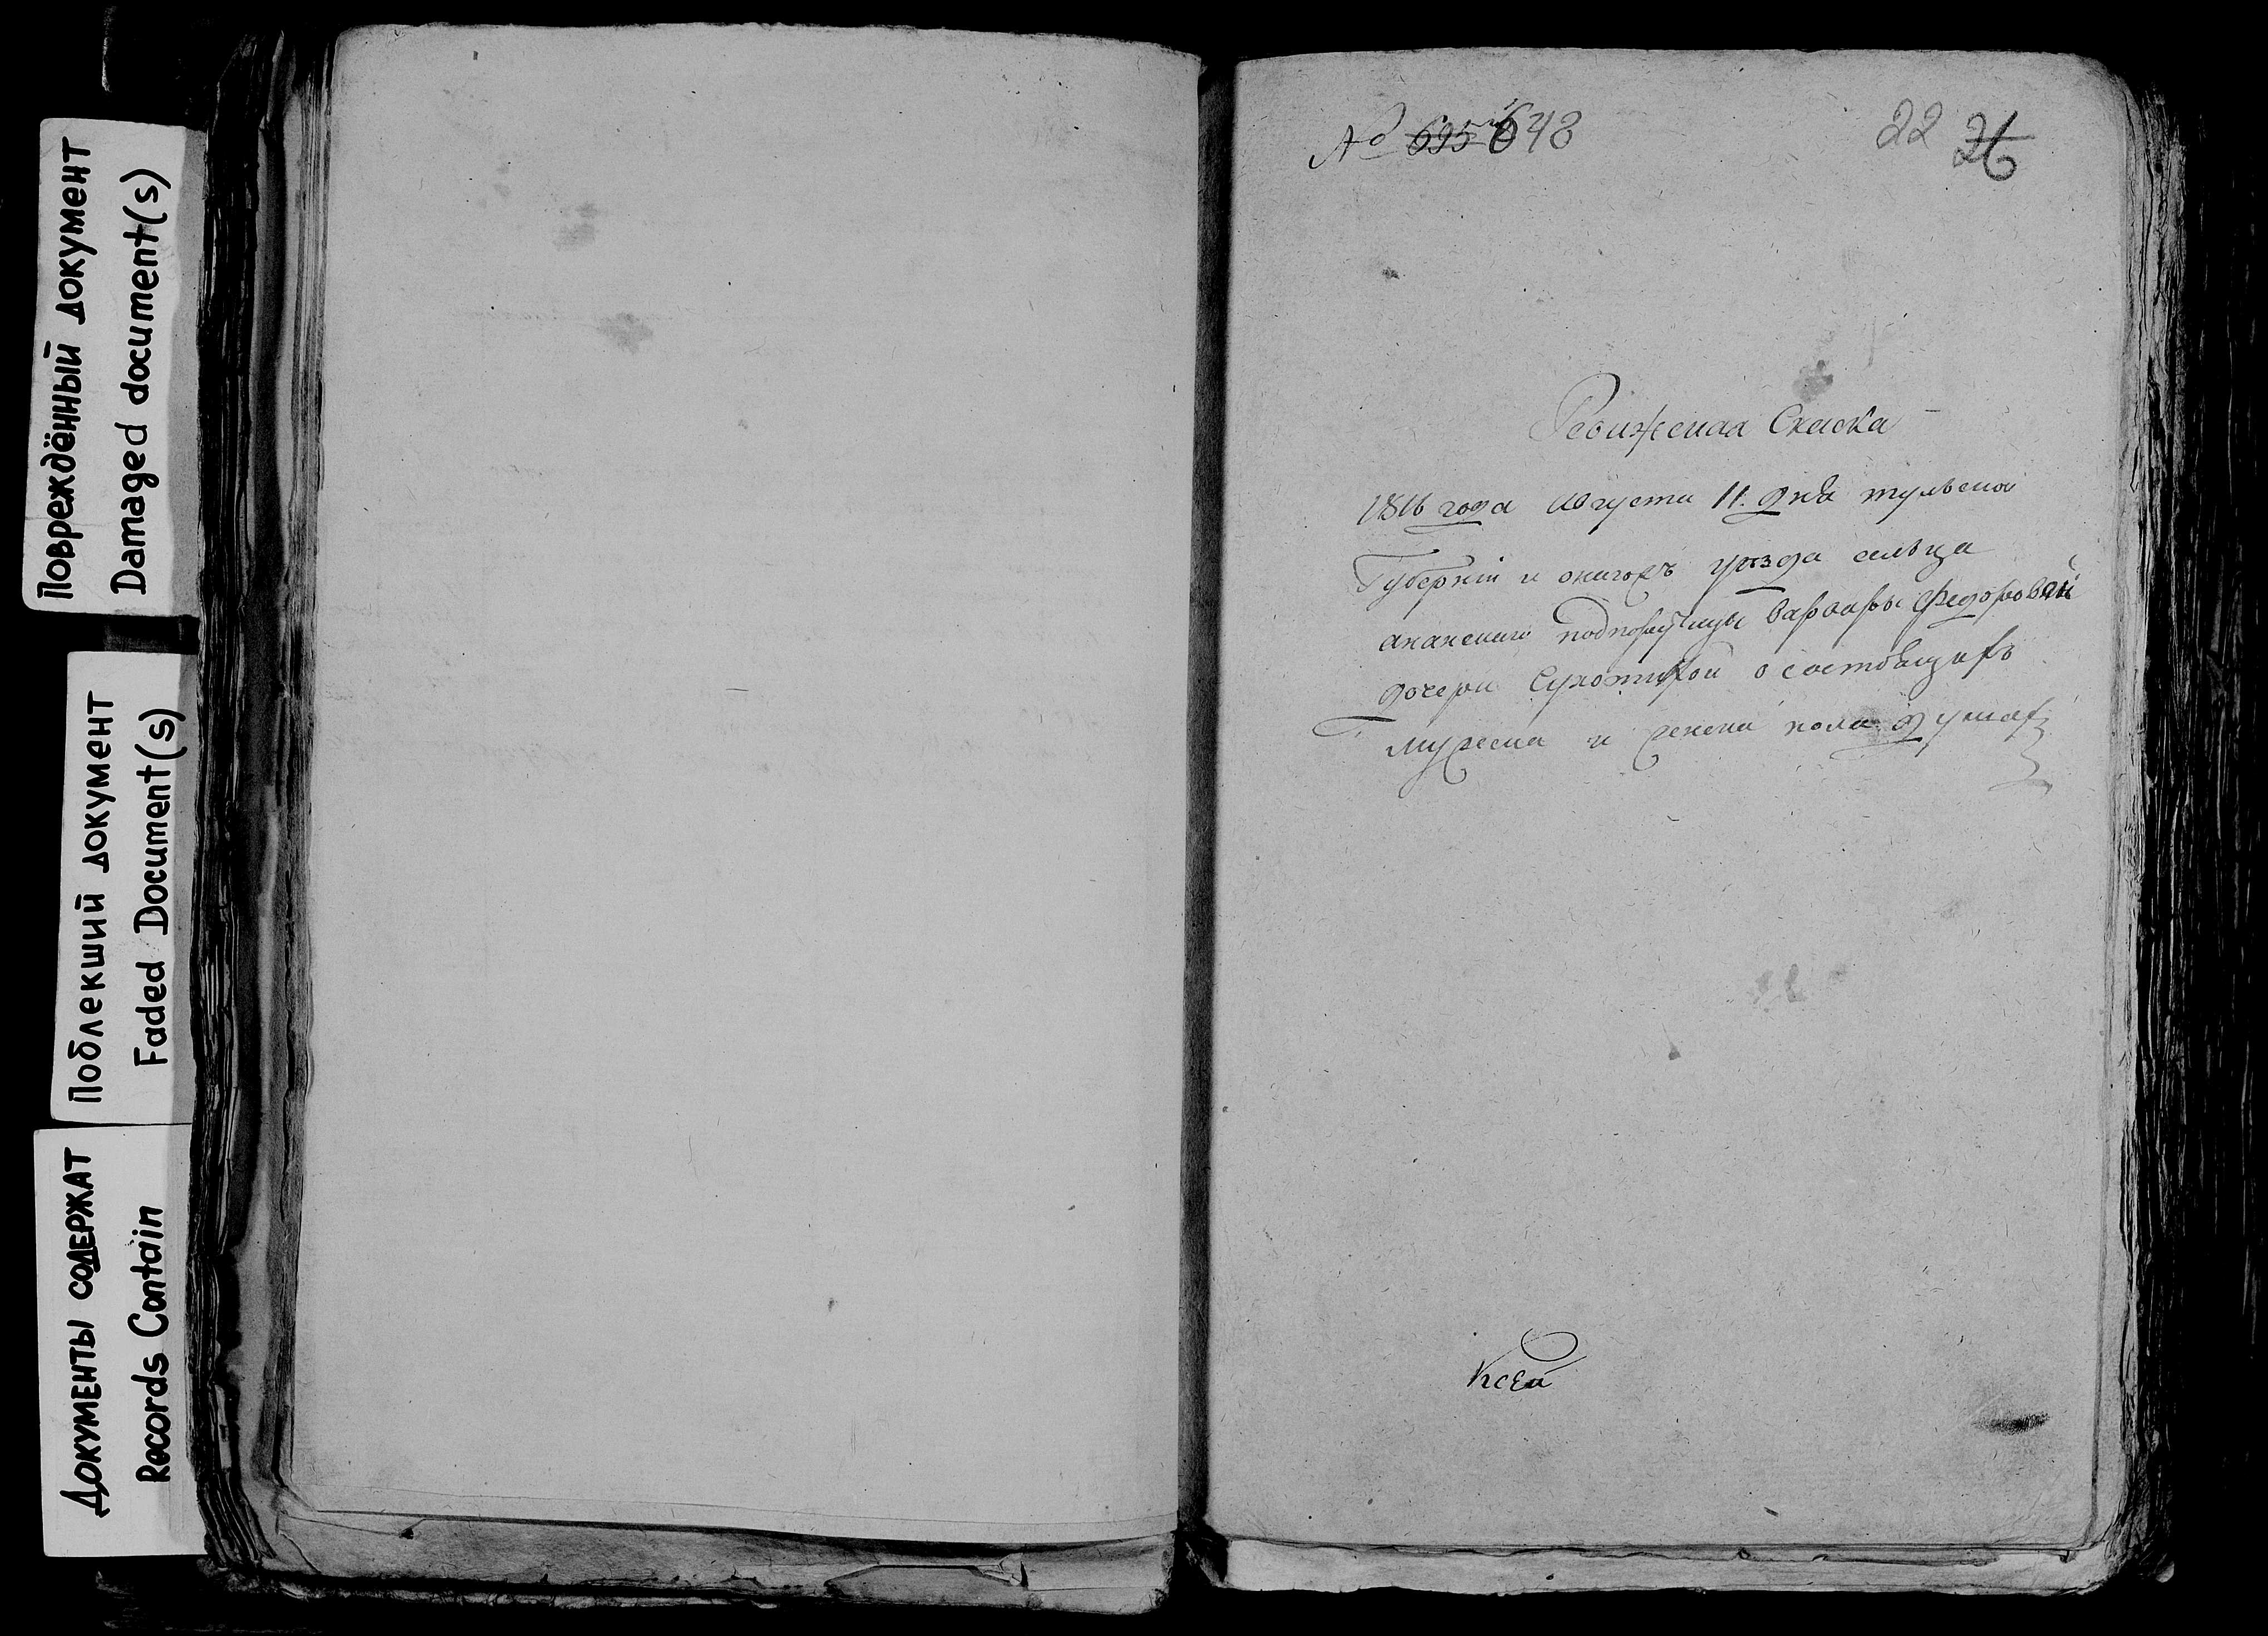 Повреждённый документ
Damaged document(s)
Поблекший документ
Faded Document(s)
Документы содержат
Records Contain
№ 695 648
22 26
Ревижская Скаска
1816 года августа 11. дня тульской
Губернiи и
уѣзда сельца
подпорутчицы варвары федоровой
дочери Сухотиной о состоящихъ
мужеска и женска пола душахъ